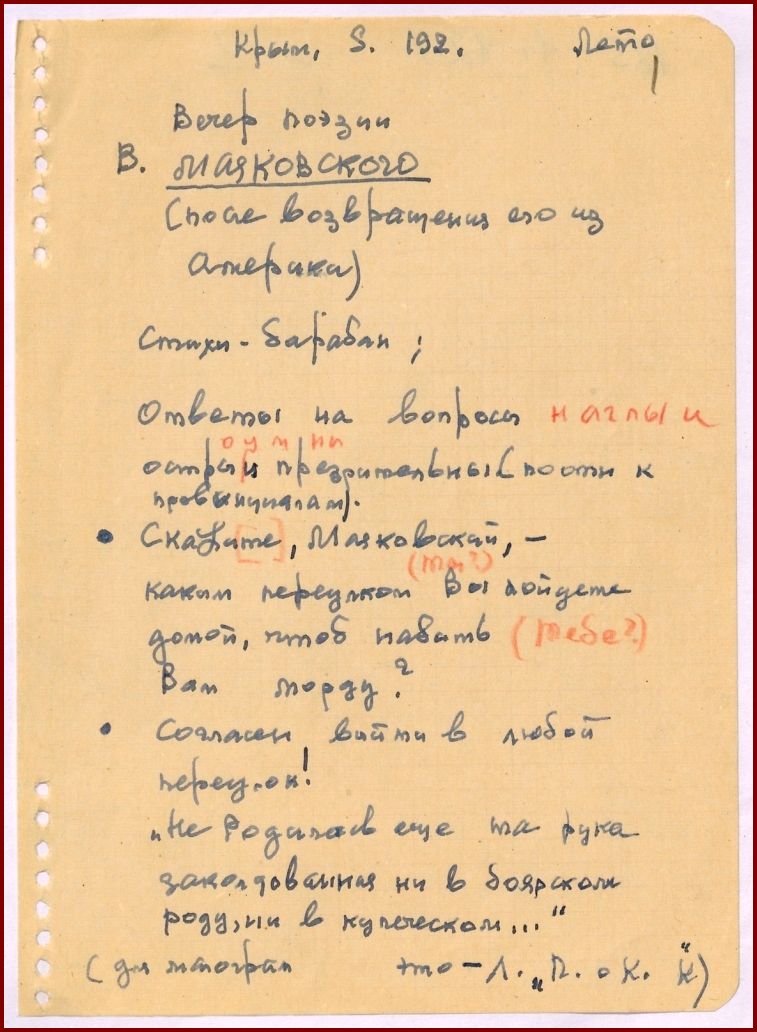 Крым, S. 192. Лето
Вечер поэзии
В. МАЯКОВСКОГО
(после возвращения его из
Америки)
Стихи - барабан ;
Ответы на вопросы наглы и
о у м н ы
остры и презрительны (почти к
провинциалам).
• Скажите [ ], Маяковский, –
(ты?)
каким переулком Вы пойдете
домой, чтоб набить (тебе?)
Вам морду?
• Согласен выйти в любой
переулок!
„Не Родилась еще та рука
заколдованная ни в боярском
роду, ни в купеческом..."
(для это – Л. „П. о К. К")